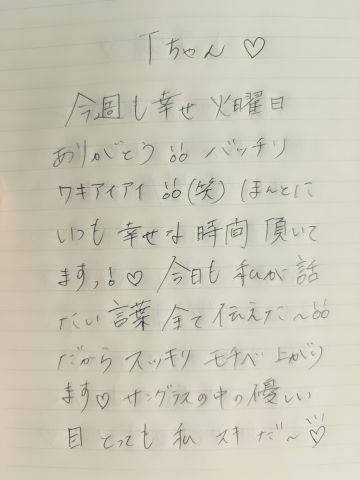 Tちゃん♡
今週も幸せ火曜日
ありがとう!! バッチリ
ワキアイアイ!!(笑)ほんとに
いつも幸せな時間頂いて
ますっ!♡ 今日も私が話
たい言葉全て伝えた〜!!
だからスッキリモチベ上がり
ます♡ サングラスの中の優しい
目とっても私スキだ〜♡